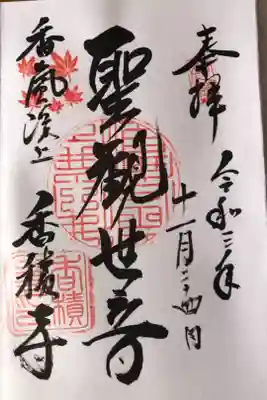 奉拝
令和三年
十一月二十四日
聖観世音
香嵐渓上
香積寺